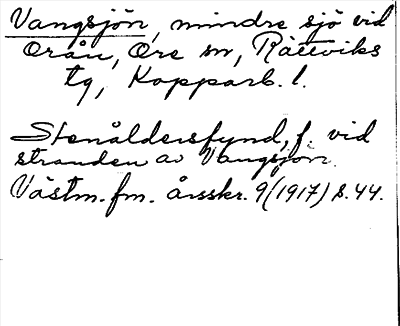 Vangsjön, mindre sjö vid
Orån, Ore sn, Rättviks
tg, Kopparb. l.
Stenåldersfynd, f. vid
stranden av Vangsjön.
Västm. fm. årsskr. 9 (1917) s. 44.